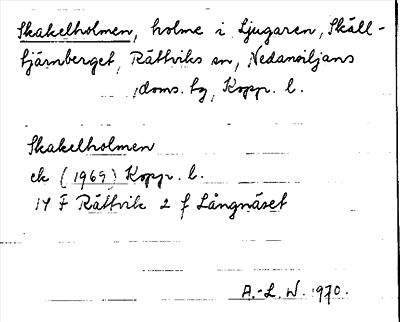 Skakelholmen, holme i Ljugaren, Skäll-
tjärnberget, Rättviks sn, Nedansiljans
doms. tg, Kopp. l.
Skakelholmen
ek (1969) Kopp. l.
14 F Rättvik 2 f Långnäset
A.-L. W. 1970.